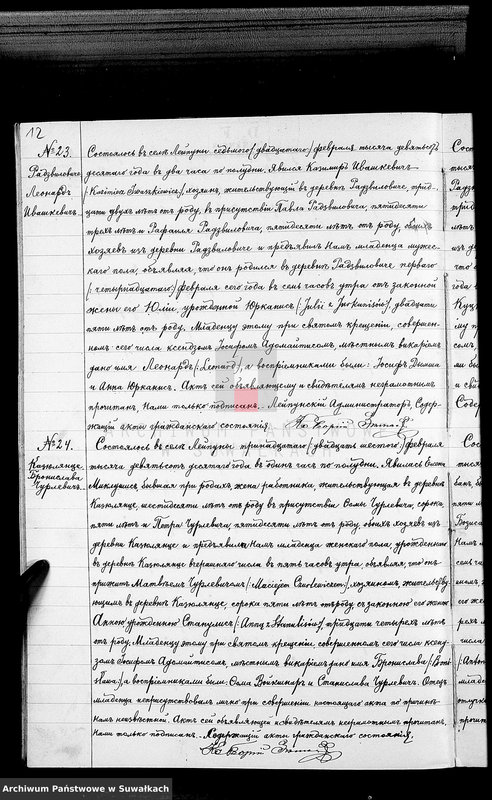 12
№ 23.
Радзвиловиче
Леонардъ
Ивашкевичъ.
Состоялось въ селѣ Лейпуны седьмого (двадцатаго) февраля тысяча девятьсотъ
десятаго года въ два часа по полудни. Явился Казимиръ Ивашкевичъ
(Kazimierz Iwaszkiewicz), хозяинъ, жительствующій въ деревнѣ Радзвиловиче, трид-
цати двухъ лѣтъ отъ роду, въ присутствіи Павла Радзвиловича, пятидесяти
трехъ лѣтъ и Рафаила Радзвиловича, пятидесяти лѣтъ отъ роду, обоихъ
хозяевъ изъ деревни Радзвиловиче и предъявилъ Намъ младенца мужес-
каго пола, объявляя, что онъ родился въ деревнѣ Радзвиловиче перваго
(четырнадцатаго) февраля сего года въ семь часовъ утра отъ законной
жены его Юліи, урожденной Юрканисъ (Julii z Jurkanisów), двадцати
пяти лѣтъ отъ роду. Младенцу этому при святомъ крещеніи, совершен-
номъ сего числа ксендзомъ Іосифомъ Адомайтисомъ, мѣстнымъ викаріемъ
дано имя Леонардъ (Leonard), а воспріемниками были: Іосифъ
и Анна Юрканисъ. Актъ сей объявляющему и свидѣтелямъ неграмотнымъ
прочитанъ, Нами только подписанъ. Лейпунскій Администраторъ, Содер-
жащій акты гражданскаго состоянія Кс.
№ 24.
Казюлянце.
Бронислава
Чурлевичъ.
Состоялось въ селѣ Лейпуны тринадцатаго (двадцать шестого) февраля
тысяча девятьсотъ десятаго года въ одинъ часъ по полудни. Явилась
бывшая при родахъ, жена работника, жительствующая въ деревнѣ
Казюлянце, шестидесяти лѣтъ отъ роду въ присутствіи Ѳомы Чурлевича, сорока
пяти лѣтъ и Петра Чурлевича, пятидесяти лѣтъ отъ роду, обоихъ хозяевъ изъ
деревни Казюлянце и предъявила Намъ младенца женскаго пола, урожденнаго
въ деревнѣ Казюлянце вчерашняго числа въ пять часовъ утра, объявляя, что онъ
прижитъ Матвѣемъ Чурлевичемъ (Maciejem Czurlewiczem), хозяиномъ, жительству-
ющимъ въ деревнѣ Казюлянце, сорока пяти лѣтъ отъ роду, съ законною его женою
Анною, урожденною Станулисъ (Anną z Stanulisów), тридцати четырехъ лѣтъ
отъ роду. Младенцу этому при святомъ крещеніи, совершенномъ сего числа ксенд-
зомъ Іосифомъ Адомайтисомъ, мѣстнымъ викаріемъ дано имя Бронислава (Broni-
sława), а воспріемниками были: Ѳома и Станислава Чурлевичъ. Отецъ
младенца неприсутствовалъ лично при совершеніи настоящаго акта по причи-
намъ неизвѣстнымъ. Актъ сей объявляющей и свидѣтелямъ неграмотнымъ прочитанъ,
Нами только подписанъ. Содержащій акты гражданскаго состоянія,
Кс.
Archiwum Państwowe w Suwałkach